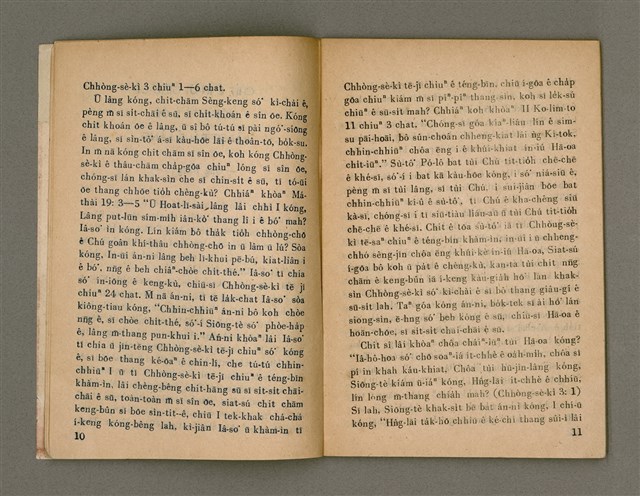 Chhòng-sè-kì 3 chiuⁿ 1—6 chat.
Ū lâng kóng, chit-chām Sèng-keng só͘ kì-chài ê,
pēng m̄ sī si̍t-chāi ê sū, sī chi̍t-khoán ê sîn ōe. Kóng
chit khoán ōe ê lâng, ū sī bô tú-tú sī pài ngó͘-siōng
ê lâng, sī sìn-tô͘ á-sī kàu-hōe lāi ê thoân-tō, bo̍k-su.
In m̄ nā kóng chit chām sī sîn ōe, koh kóng Chhòng-
sè-kì ê thâu-chām cha̍p-gōa chiuⁿ lóng sī sîn ōe,
chóng-sī lán khak-sìn che sī chin-si̍t ê sū, tī tó-ūi
ōe thang chhōe tio̍h chèng-kù? Chhiáⁿ khòaⁿ Má-
thài 19: 3—5 "Ū Hoat-lī-sài lâng lâi chhì I kóng,
Lâng put-lūn sím-mi̍h iân-kò͘ thang lī i ê bó͘ mah?
Iâ-so͘ ìn kóng. Lín kiám bô tha̍k tio̍h chhòng-chō
ê Chú goân khí-thâu chhòng-chō in ū lâm ū lú? Sòa
kóng, In-ūi án-ni lâng beh lī-khui pē-bú, kiat-liân i
ê bó͘, nn̄g ê beh chiâⁿ-chòe chi̍t-thé." Iâ-so͘ tī chia
só͘ ín-iōng ê keng-kù, chiū-sī Chhòng-sè-kì tē jī
chiuⁿ 24 chat. M̄ nā án-ni, tī tē la̍k-chat Iâ-so͘ sòa
kiông-tiau kóng, "Chhin-chhiūⁿ án-ni bô koh chòe
nn̄g ê, sī chòe chi̍t-thé, só͘-í Siōng-tè só͘ phòe-ha̍p
ê, lâng m̄-thang pun-khui i." Án-ni khòaⁿ lâi Iâ-so͘
tī chia ū jīn-tēng Chhòng-sè-kì tē-jī chiuⁿ só͘ kóng
ê, sī bōe thang kè-ōaⁿ ê chin-lí, che tú-tú chhin-
chhiūⁿ I ū tī Chhòng-sè-kì tē-jī chiuⁿ ê téng-bīn
khàm-ìn, lâi chèng-bêng chi̍t-hāng sū sī si̍t-si̍t chāi-
chāi ê sū, toàn-toàn m̄ sī sîn ōe, siat-sú chi̍t chām
keng-bûn sī bōe sìn-tit--ê, chiū I tek-khak chá-chá
í-keng kóng-bêng lah, kì-jiân Iâ-so͘ ū khàm-ìn tī
10
Chhòng-sè-kì tē-jī chiuⁿ ê téng-bīn, chiū í-gōa ê cha̍p
gōa chiuⁿ kiám m̄ sī pîⁿ-pîⁿ thang-sìn, koh sī le̍k-sú
chiuⁿ ê sū-si̍t mah? Chhiáⁿ koh khòaⁿ II Ko-lîm-to
11 chiuⁿ 3 chat, "Chóng-sī góa kiaⁿ-liâu lín ê sim-
su pāi-hoāi, bô sûn-choân chheng-kiat lâi n̄g Ki-tok,
chhin-chhiūⁿ chôa êng i ê khúi-khiat ín-iú Hā-oa
chi̍t-iūⁿ." Sù-tô͘ Pó-lô bat tùi Chú tit-tio̍h chē-chē
ê khé-sī, só͘-í i bat kā kàu-hōe kóng, i só͘ niá-siū ê,
pēng m̄ sī tùi lâng, sī tùi Chú. I sui-jiân bōe bat
chhin-chhiūⁿ kî-û ê sù-tô͘, tī Chú ê kha-chêng siū
kà-sī, chóng-sī i tī siū-tiàu liân-au ū tùi Chú tit-tio̍h
chē-chē ê khé-sī. Chit ê tōa sù-tô͘ iā tī Chhòng-sè-
kì tē-saⁿ chiuⁿ ê téng-bīn khàm-ìn, in-ūi i ū chheng-
chhó sêng-jīn chôa êng khúi-kè ín-iú Hā-oa, Siat-sú
í-gōa bô koh ū pa̍t ê chèng-kù, kan-ta tùi chit nn̄g
chām ê keng-bûn iā í-keng káu-gia̍h hō͘ lán khak-
sìn Chhòng-sè-kì só͘ kì-chāi ê sī bô thang giâu-gî ê
sū-si̍t lah. Taⁿ góa kóng án-ni, bo̍k-tek sī ài hō͘ lán
siong-sìn, ē-hng só͘ beh kóng ê sū, chiū-sī Hā-oa ê
hoān-chōe, sī si̍t-si̍t chāi-chāi ê sū.
Chit sî lâi khòaⁿ chôa cháiⁿ-iūⁿ tùi Hā-oa kóng?
"Iâ-hô-hoa só͘ chō soaⁿ-iá it-chhè ê oa̍h-mi̍h, chôa sī
pí in khah káu-khiat, Chôa tùi hū-jîn-lâng kóng,
Siōng-tè kiám ū-iáⁿ kóng, Hn̂g-lāi it-chhè ê chhiū,
lín lóng m̄-thang chia̍h mah? (Chhòng-sè-kì 3: 1)
Sī lah, Siōng-tè khak-si̍t bē bat án-ni kóng, I chí-ū
kóng, "Hn̂g-lāi ta̍k-hō chhiū ê ké-chí thang sûi-ì lâi
11